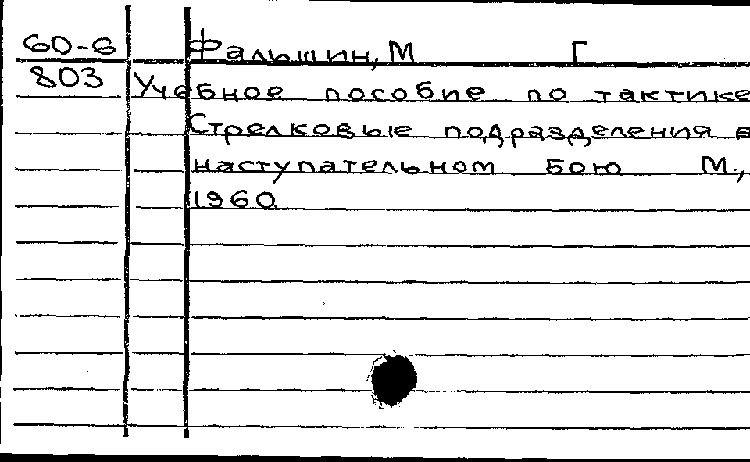 60-6 Фальшин, М Г
803 Учебное пособие по тактике
Стрелковые подразделения в
наступательном бою М.,
1960